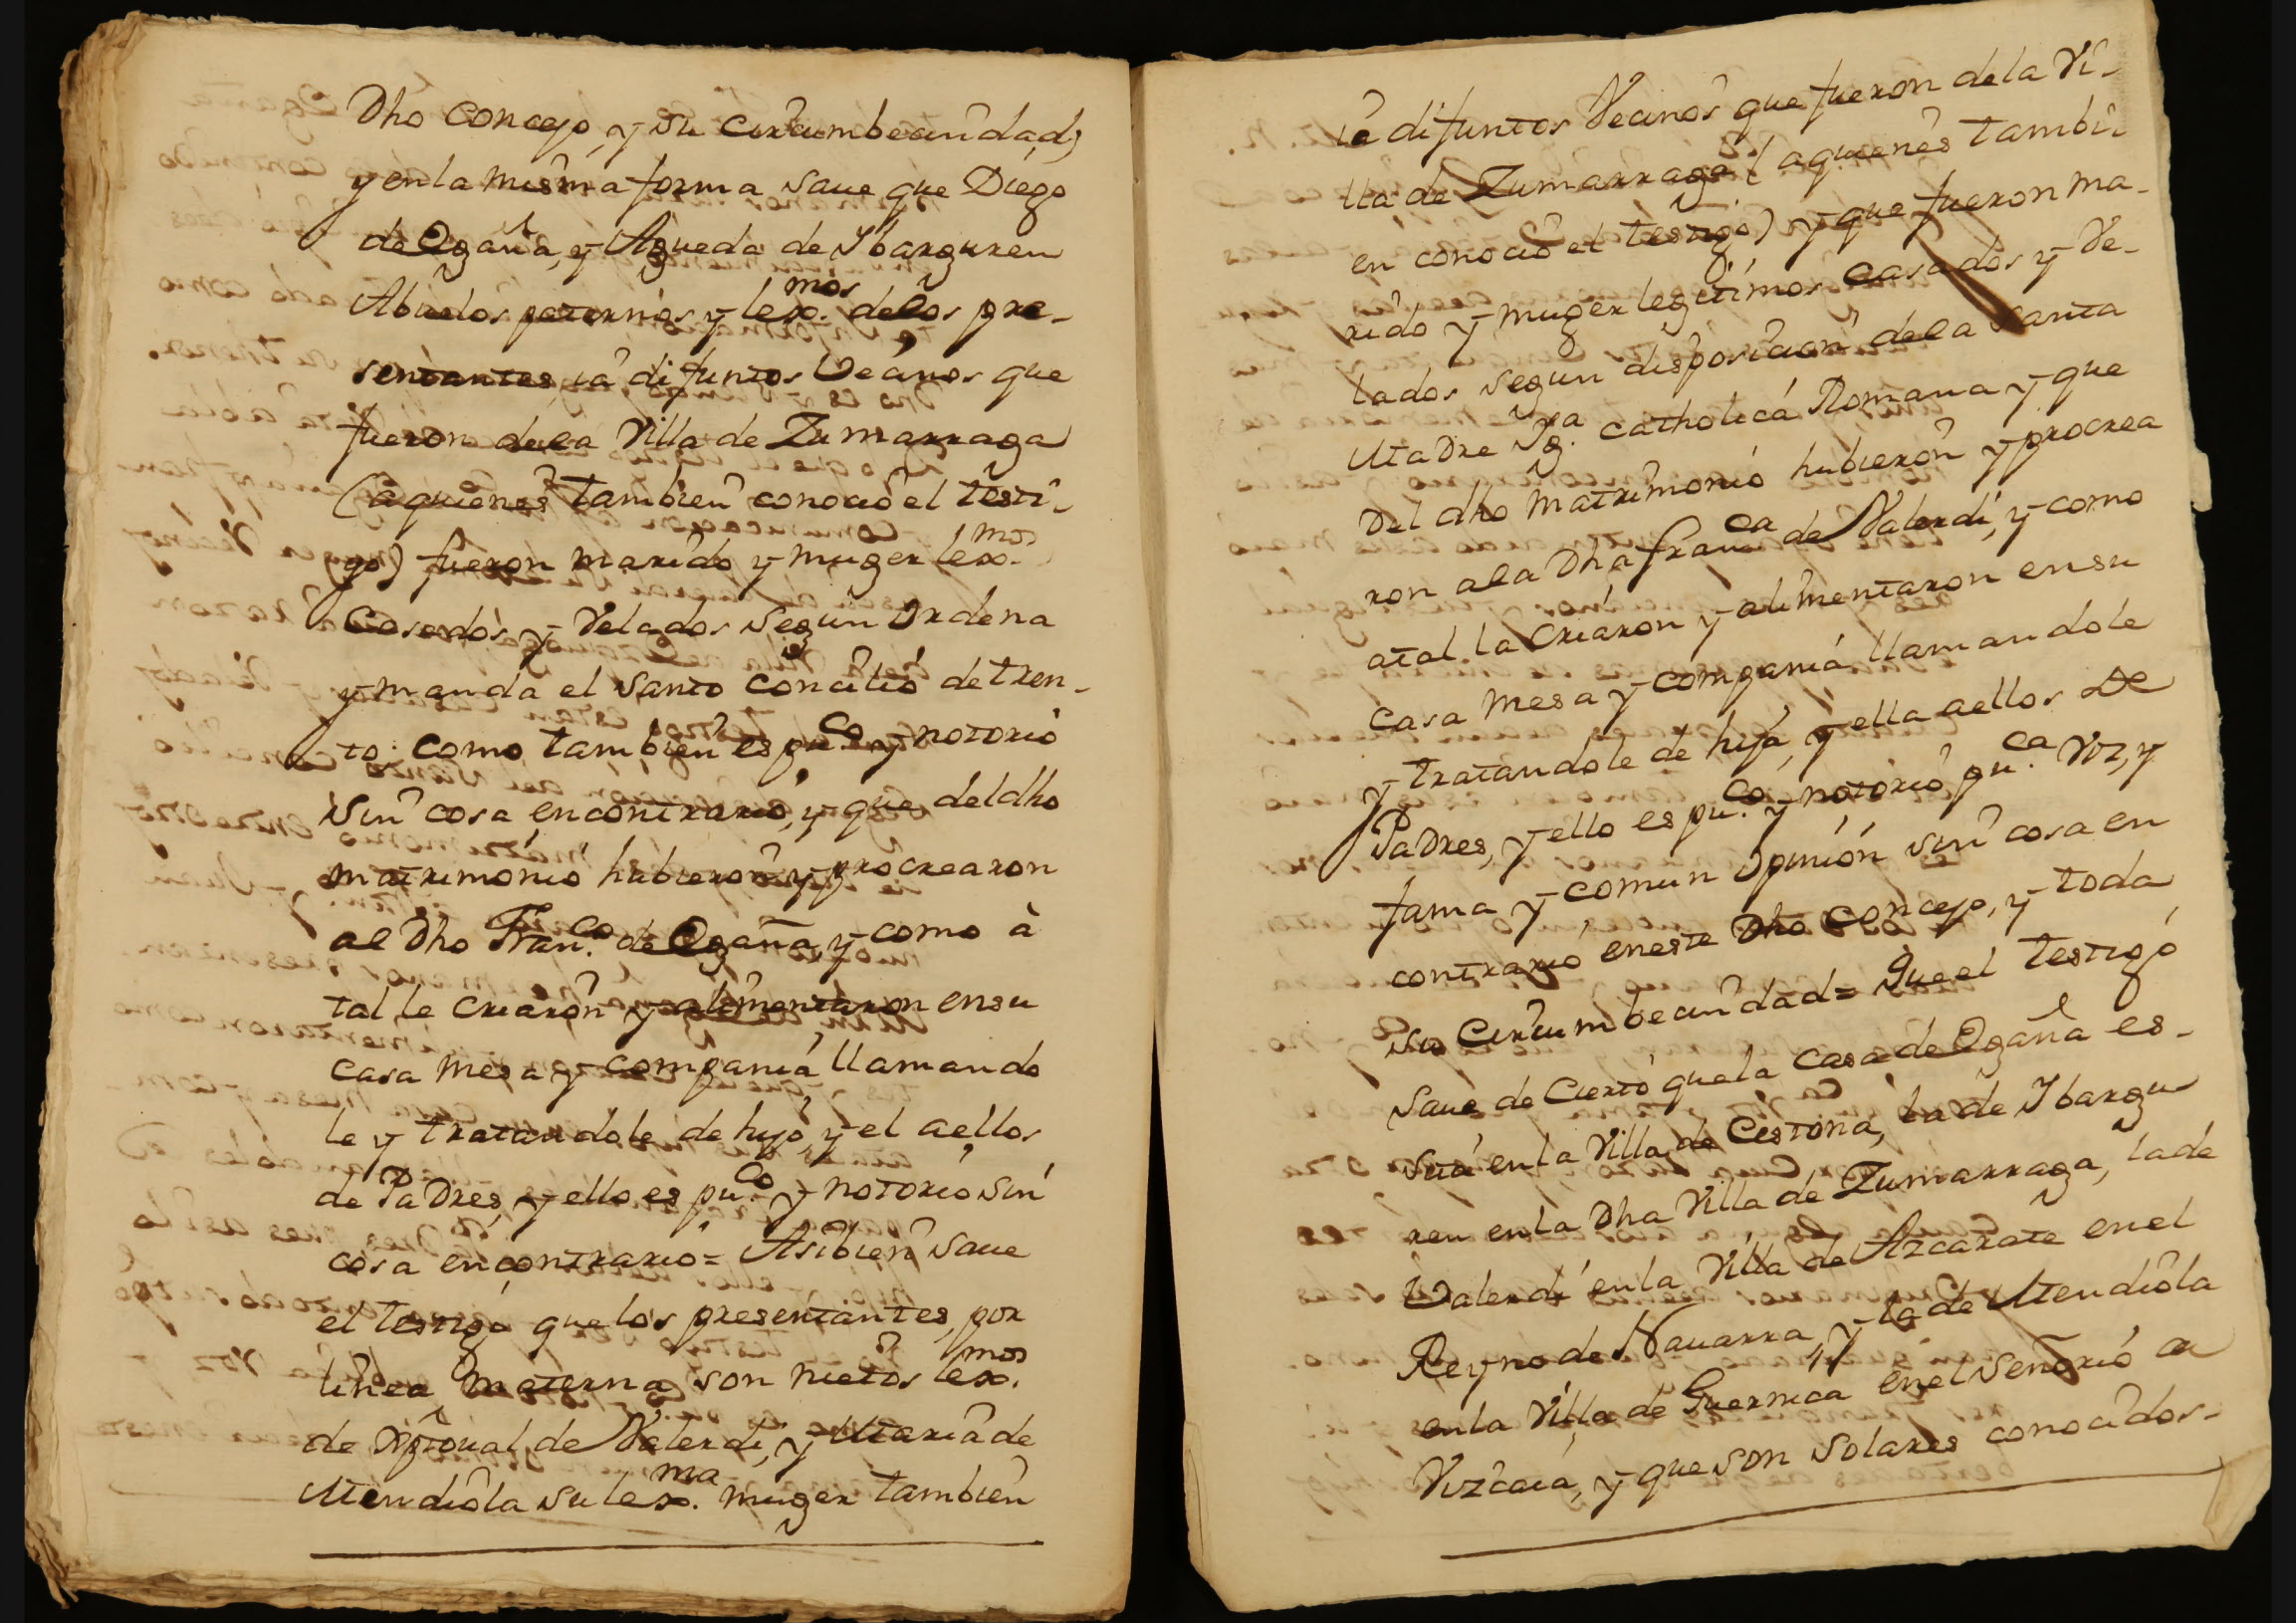 Dho Concejo, y su Circumbecindad;
y en la misma forma saue que Diego
de Ogaña, y Agueda de Ybarguren
Abuelos paternos y lexmos. delos pre-
sentantes, iá difuntos Vecinos que
fueron dela Villa de Zumarraga
(aquienes tambien conoció el testi-
go) fueron marido y muger lexmos.
Casados y Velados segun Ordena
y manda el Santo Concilio de tren-
to; como tambien es puco. y notorio
sin cosa encontrario, y que del dho
matrimonio hubieron y procrearon
al Dho Franco. de Ogaña, y como à
tal le criaron y alimentaron ensu
casa mesa y compania, llamando
le y tratandole de hijo, y el aellos
de Padres, y ello es puco. y notorio sin
cosa encontrario = Asibien saue
el testigo que los presentantes, por
linea Materna son nietos lexmos.
de Xptoual de Valerdi, y Maria de
Mendiola su lexma. muger tambien
iá difuntos Vecinos que fueron dela Vi-
lla de Zumarraga (aquienes tambi-
en conoció el testigo) y que fueron ma-
rido y muger legitimos casados y Ve-
lados segun disposicion dela Santa
Madre Yga. Catholica Romana y que
Del dho Matrimonio hubieron y procrea
ron ala Dha Franca de Valerdi, y como
atal la Criaron y alimentaron ensu
casa Mesa y compania llamandole
y tratandole de hija, y ella aellos De
Padres, y ello es puco. y notorio puca. voz, y
fama y comun Opinion sin cosa en
contrario eneste Dho Concejo, y toda
su Circumbecindad = Que el testigo
saue de Cierto quela Casa de Ogaña es-
sita en la Villa de Cestona, la de Ybargu
ren en la Dha Villa de Zumarraga, la de
Valerdi en la Villa de Azcarate en el
Reyno de Nauarra, y la de Mendiola
en la Villa de Guernica enel Señorio de
Vizcaia, y que son Solares conocidos-